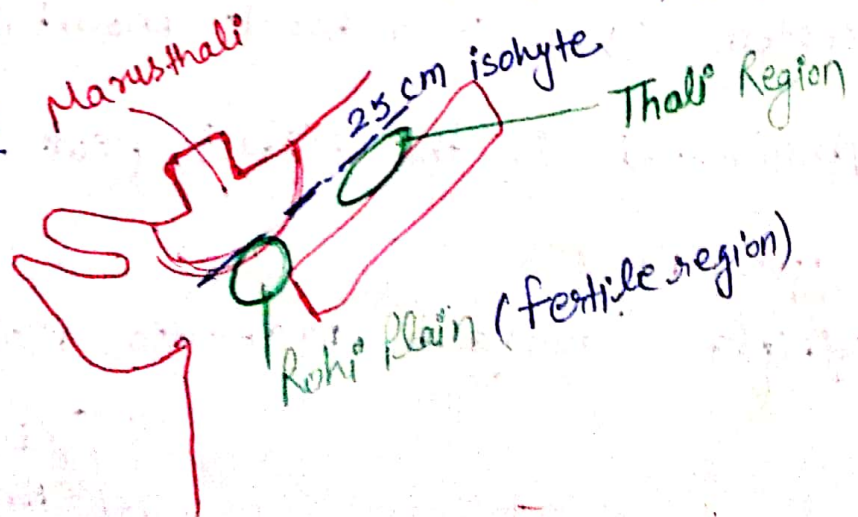 Marusthali
25 cm isohyte
Thali Region
Rohi Plain (fertile region)